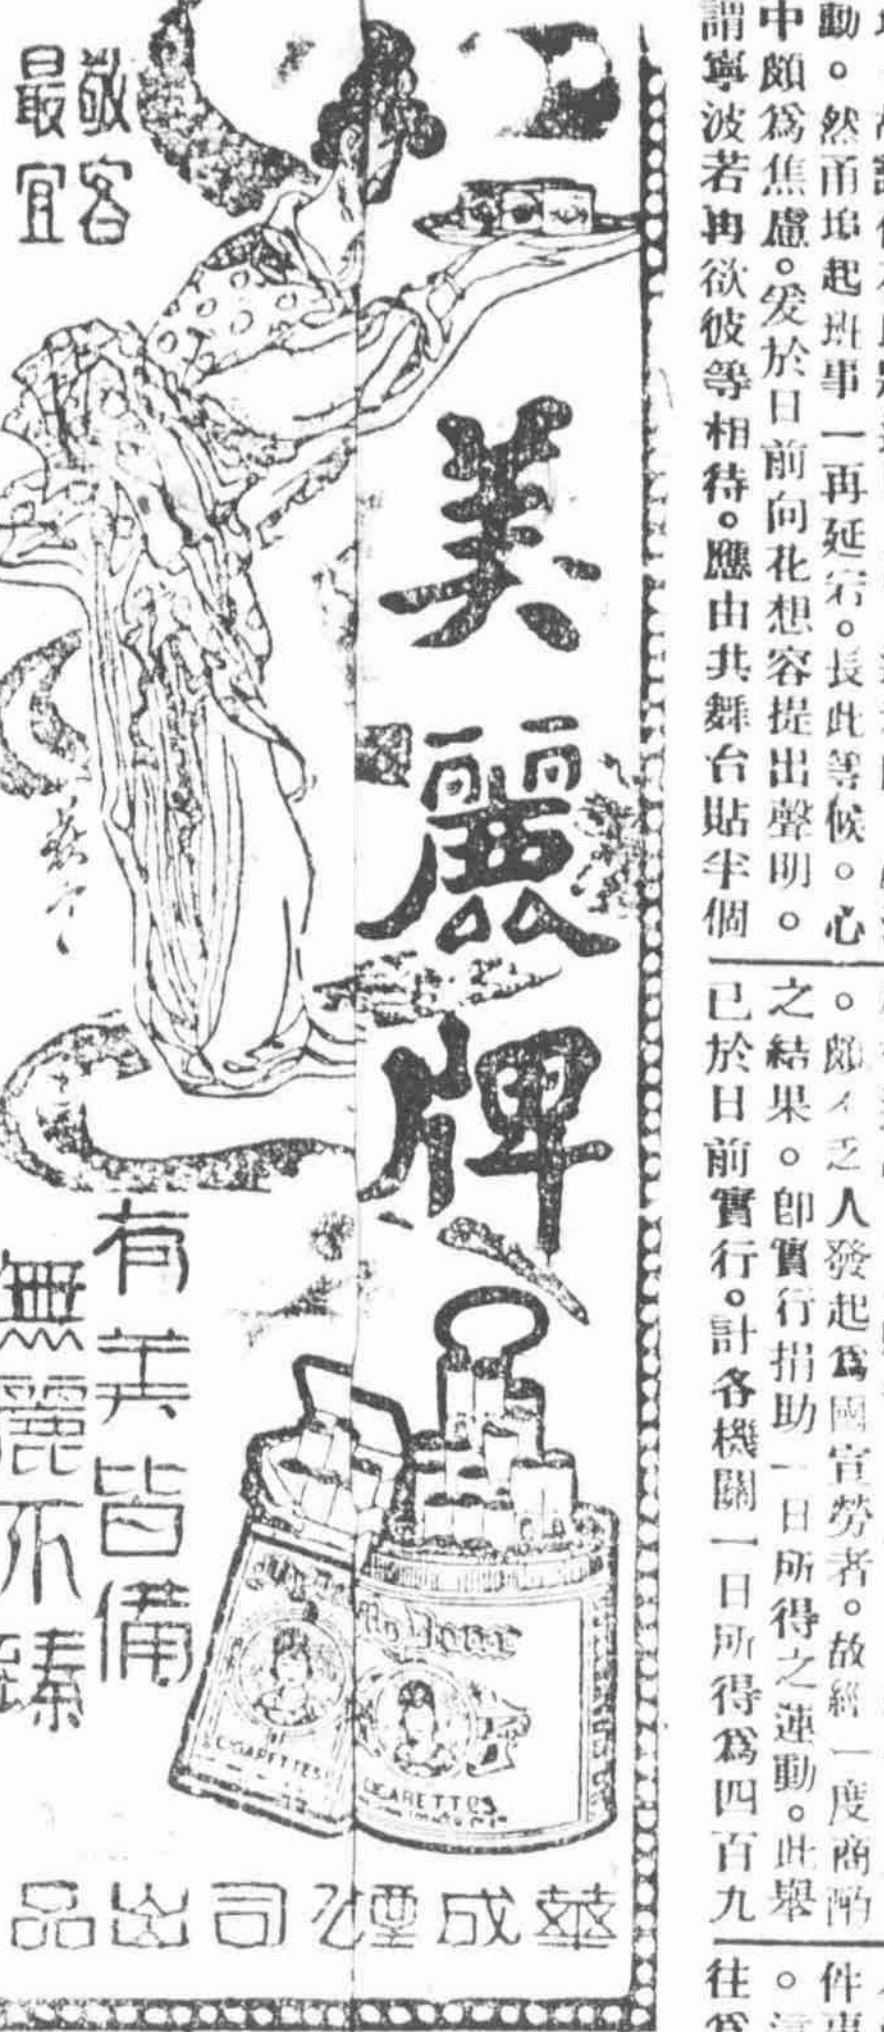 動。然甬埠起班事一再延宕。長此等候。心
中頗爲焦慮。爰於日前向花想容提出聲明。
謂寧波若再欲彼等相待。應由共舞台貼半個
。頗不乏人發起爲國宣勞者。故經一度商酌
之結果。卽實行捐助一日所得之運動。此舉
已於日前實行。計各機關一日所得爲四百九
件事
往爲
敬客
最宜
美麗牌
有美皆備
無麗不臻
CIGARETTES
CIGARETTES
華成煙公司出品